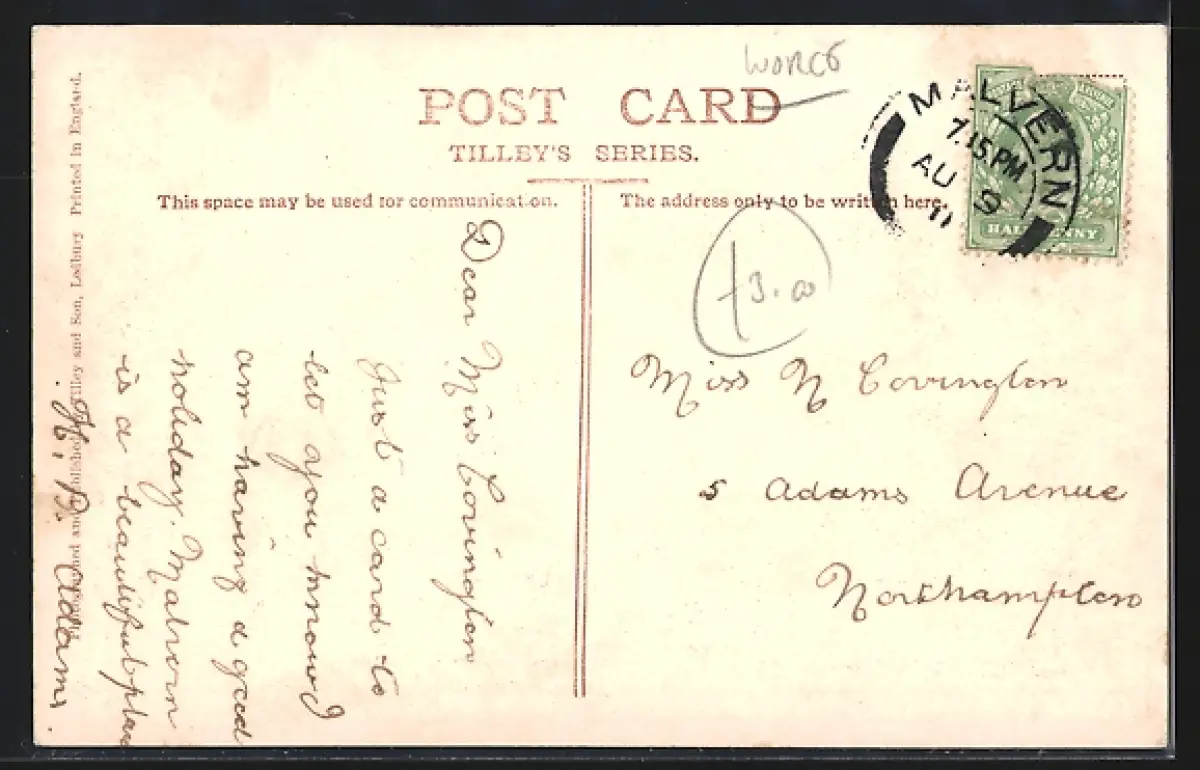 WORCS
POST CARD
TILLEY'S SERIES.
This space may be used for communication.
The address only to be written here.
MALVERN
7.15 PM
AU 9
11
HALFPENNY
£3.00
Dear Miss Covington
Just a card to
let you know I
am having a good
holiday. Malvern
is a beautiful place
H. B. Adams.
Miss N Covington
5 Adams Avenue
Northampton
and Published Tilley and Son, Ledbury Printed in England.